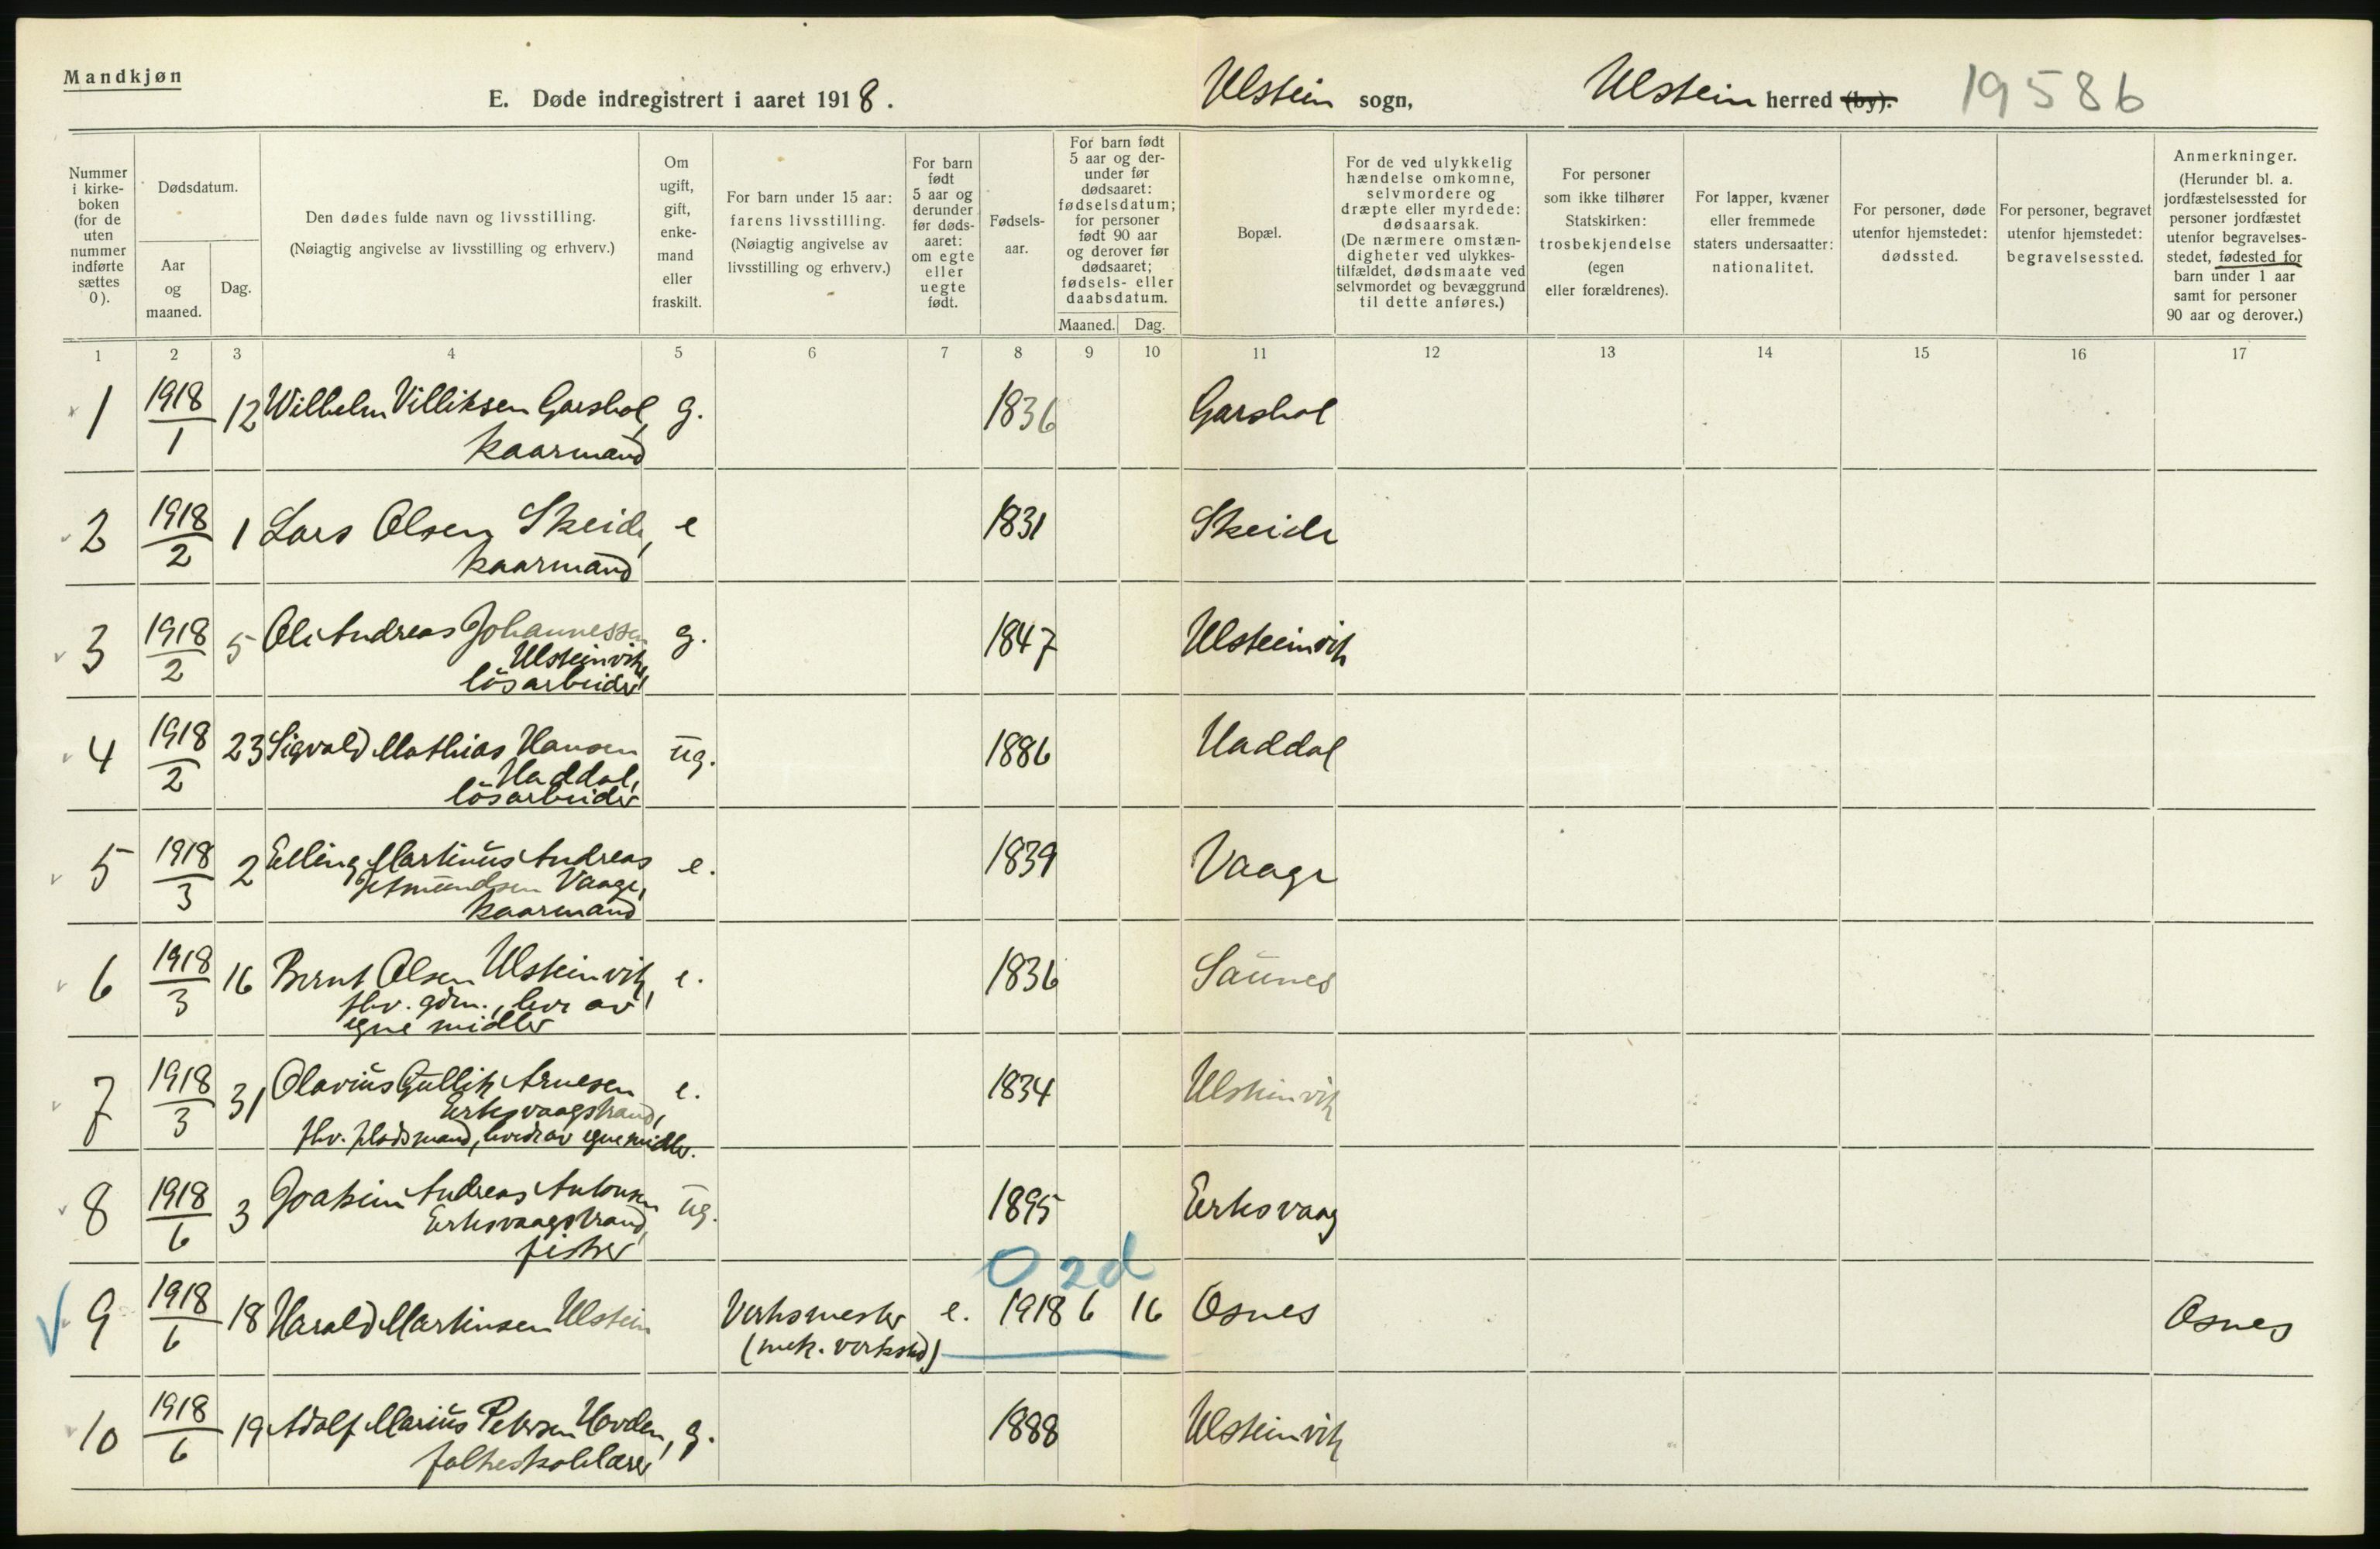 Mandkjøn
E. Døde indregistrert i aaret 1918.
Ulstein sogn,
Ulstein herred (by).
19586
Nummer
i kirke-
boken
(for de
uten
nummer
indførte
sættes
0).
Dødsdatum.
Aar
og
maaned.
Dag.
Den dødes fulde navn og livsstilling.
(Nøiagtig angivelse av livsstilling og erhverv.)
Om
ugift,
gift,
enke-
mand
eller
fraskilt.
For barn under 15 aar:
farens livsstilling.
(Nøiagtig angivelse av
livsstilling og erhverv.)
For barn
født
5 aar og
derunder
før døds-
aaret:
om egte
eller
uegte
født.
Fødsels-
aar.
For barn født
5 aar og der-
under før
dødsaaret:
fødselsdatum;
for personer
født 90 aar
og derover før
dødsaaret;
fødsels- eller
daabsdatum.
Maaned. Dag.
Bopæl.
For de ved ulykkelig
hændelse omkomne,
selvmordere og
dræpte eller myrdede:
dødsaarsak.
(De nærmere omstæn-
digheter ved ulykkes-
tilfældet, dødsmaate ved
selvmordet og bevæggrund
til dette anføres.)
For personer
som ikke tilhører
Statskirken:
trosbekjendelse
(egen
eller forældrenes).
For lapper, kvæner
eller fremmede
staters undersaatter:
nationalitet.
For personer, døde
utenfor hjemstedet:
dødssted.
For personer, begravet
utenfor hjemstedet:
begravelsessted.
Anmerkninger.
(Herunder bl. a.
jordfæstelsessted for
personer jordfæstet
utenfor begravelses-
stedet, fødested for
barn under 1 aar
samt for personer
90 aar og derover.)
1 2 3 4 5 6 7 8 9 10 11 12 13 14 15 16 17
1 1918/1 12 Wilhelm Villiksen Garshol, g. 1836 Garshol
kaarmand
2 1918/2 1 Lars Olsen Skeide, e 1831 Skeide
kaarmand
3 1918/2 5 Ole Andreas Johannessen g. 1847 Ulsteinvik
Ulsteinvik,
løsarbeider
4 1918/2 23 Sigvald Mathias Hansen ug. 1886 Haddal
Haddal,
løsarbeider
5 1918/3 2 Elling Martinus Andreas e. 1839 Vaage
Vaage,
kaarmand
6 1918/3 16 Bernt Olsen Ulsteinvik, e. 1836 Saunes
fhv. gdm., lever av
egne midler
7 1918/3 31 Olavius Gullik Arnesen e. 1834 Ulsteinvik
Eiksvaagstrand,
fhv. pladsmand, levde av egne midler.
8 1918/6 3 Joakim Andreas Antonsen ug. 1895 Eiksvaag
Eiksvaagstrand,
fisker
0 2d
9 1918/6 18 Harald Martinsen Ulstein Verksmester e. 1918 6 16 Osnes Osnes
(mek. verksted)
10 1918/6 19 Adolf Marius Petersen Hovden, g. 1888 Ulsteinvik
folkeskolelærer